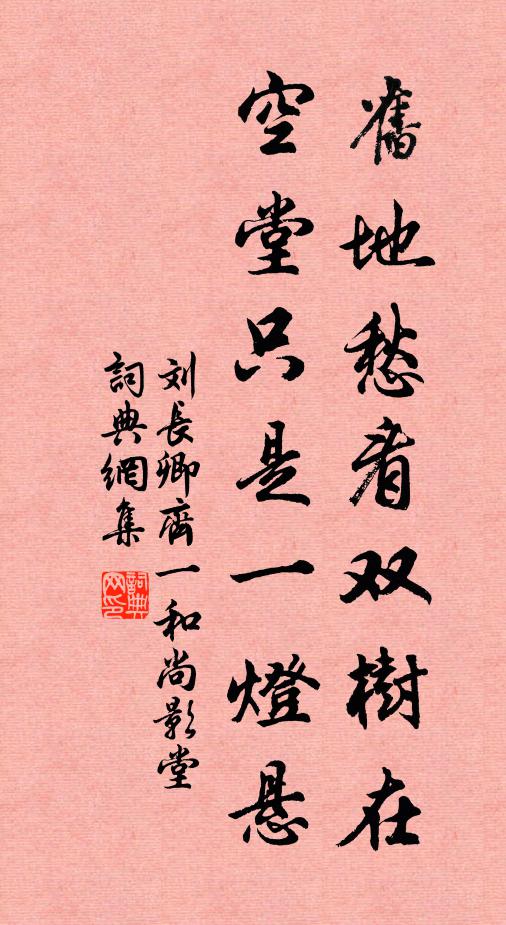 舊地愁看双樹在
空堂只是一燈懸
刘長卿齊一和尚影堂
詞典網集
詞典网印